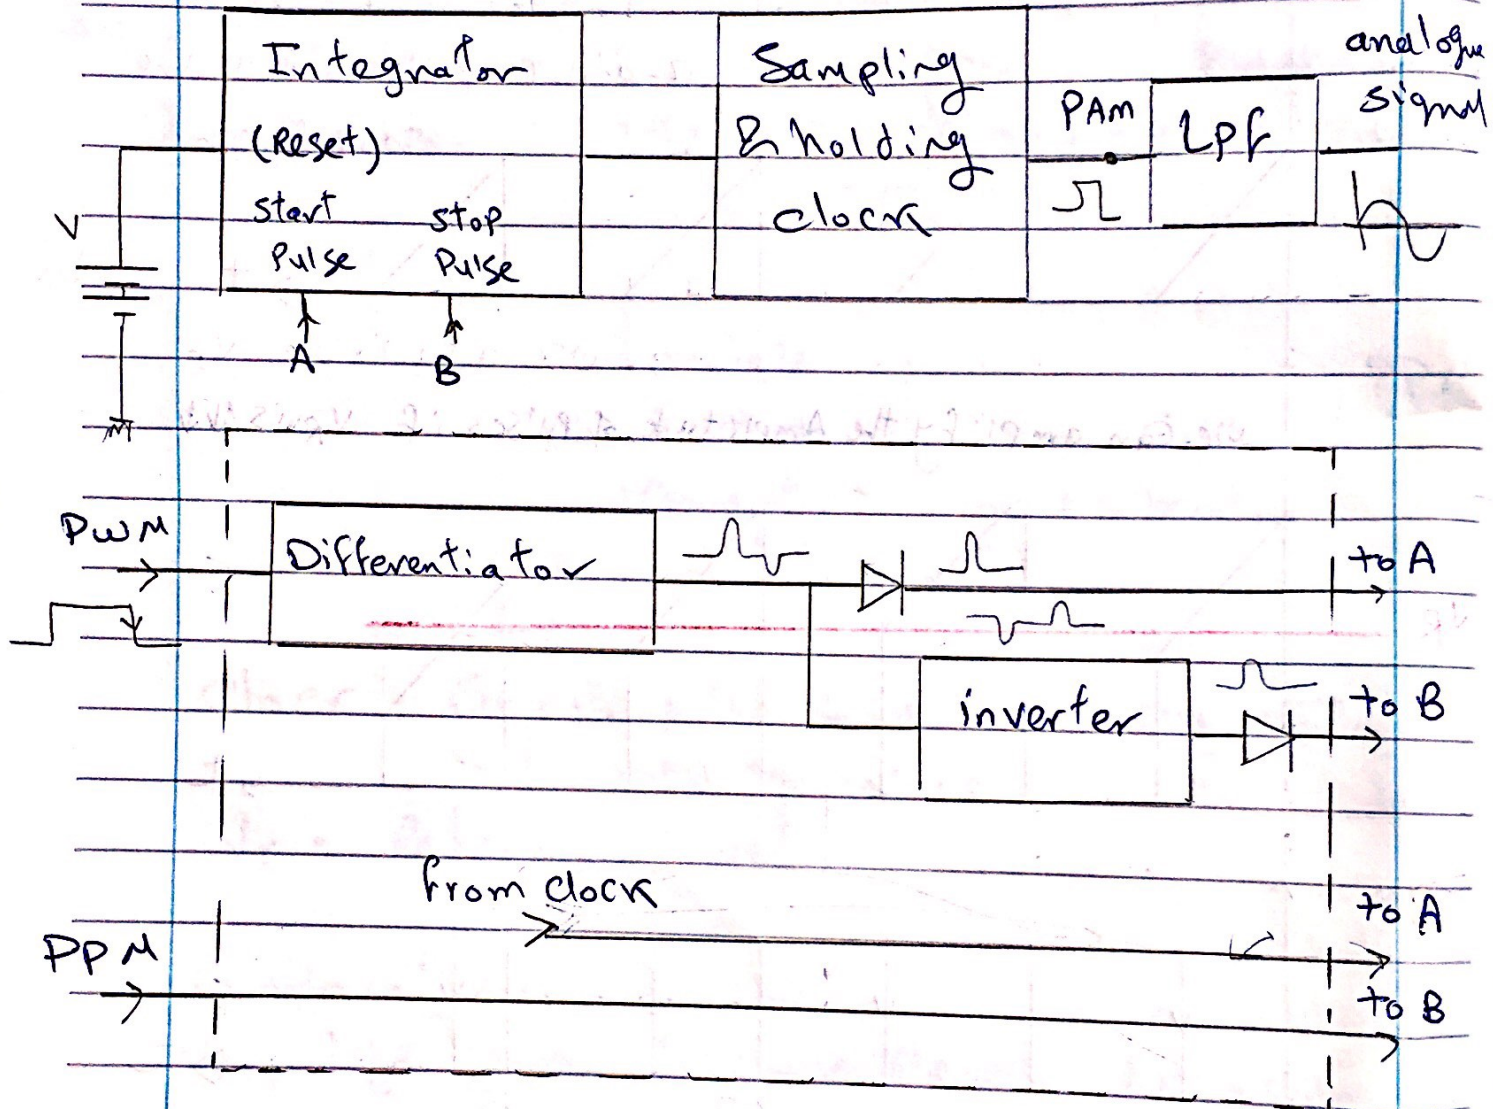 Integrator
(Reset)
start
Pulse
stop
Pulse
Sampling
& holding
clock
PAM
LPF
analogue
signal
V
A
B
PWM
Differentiator
to A
inverter
to B
from clock
to A
PPM
to B